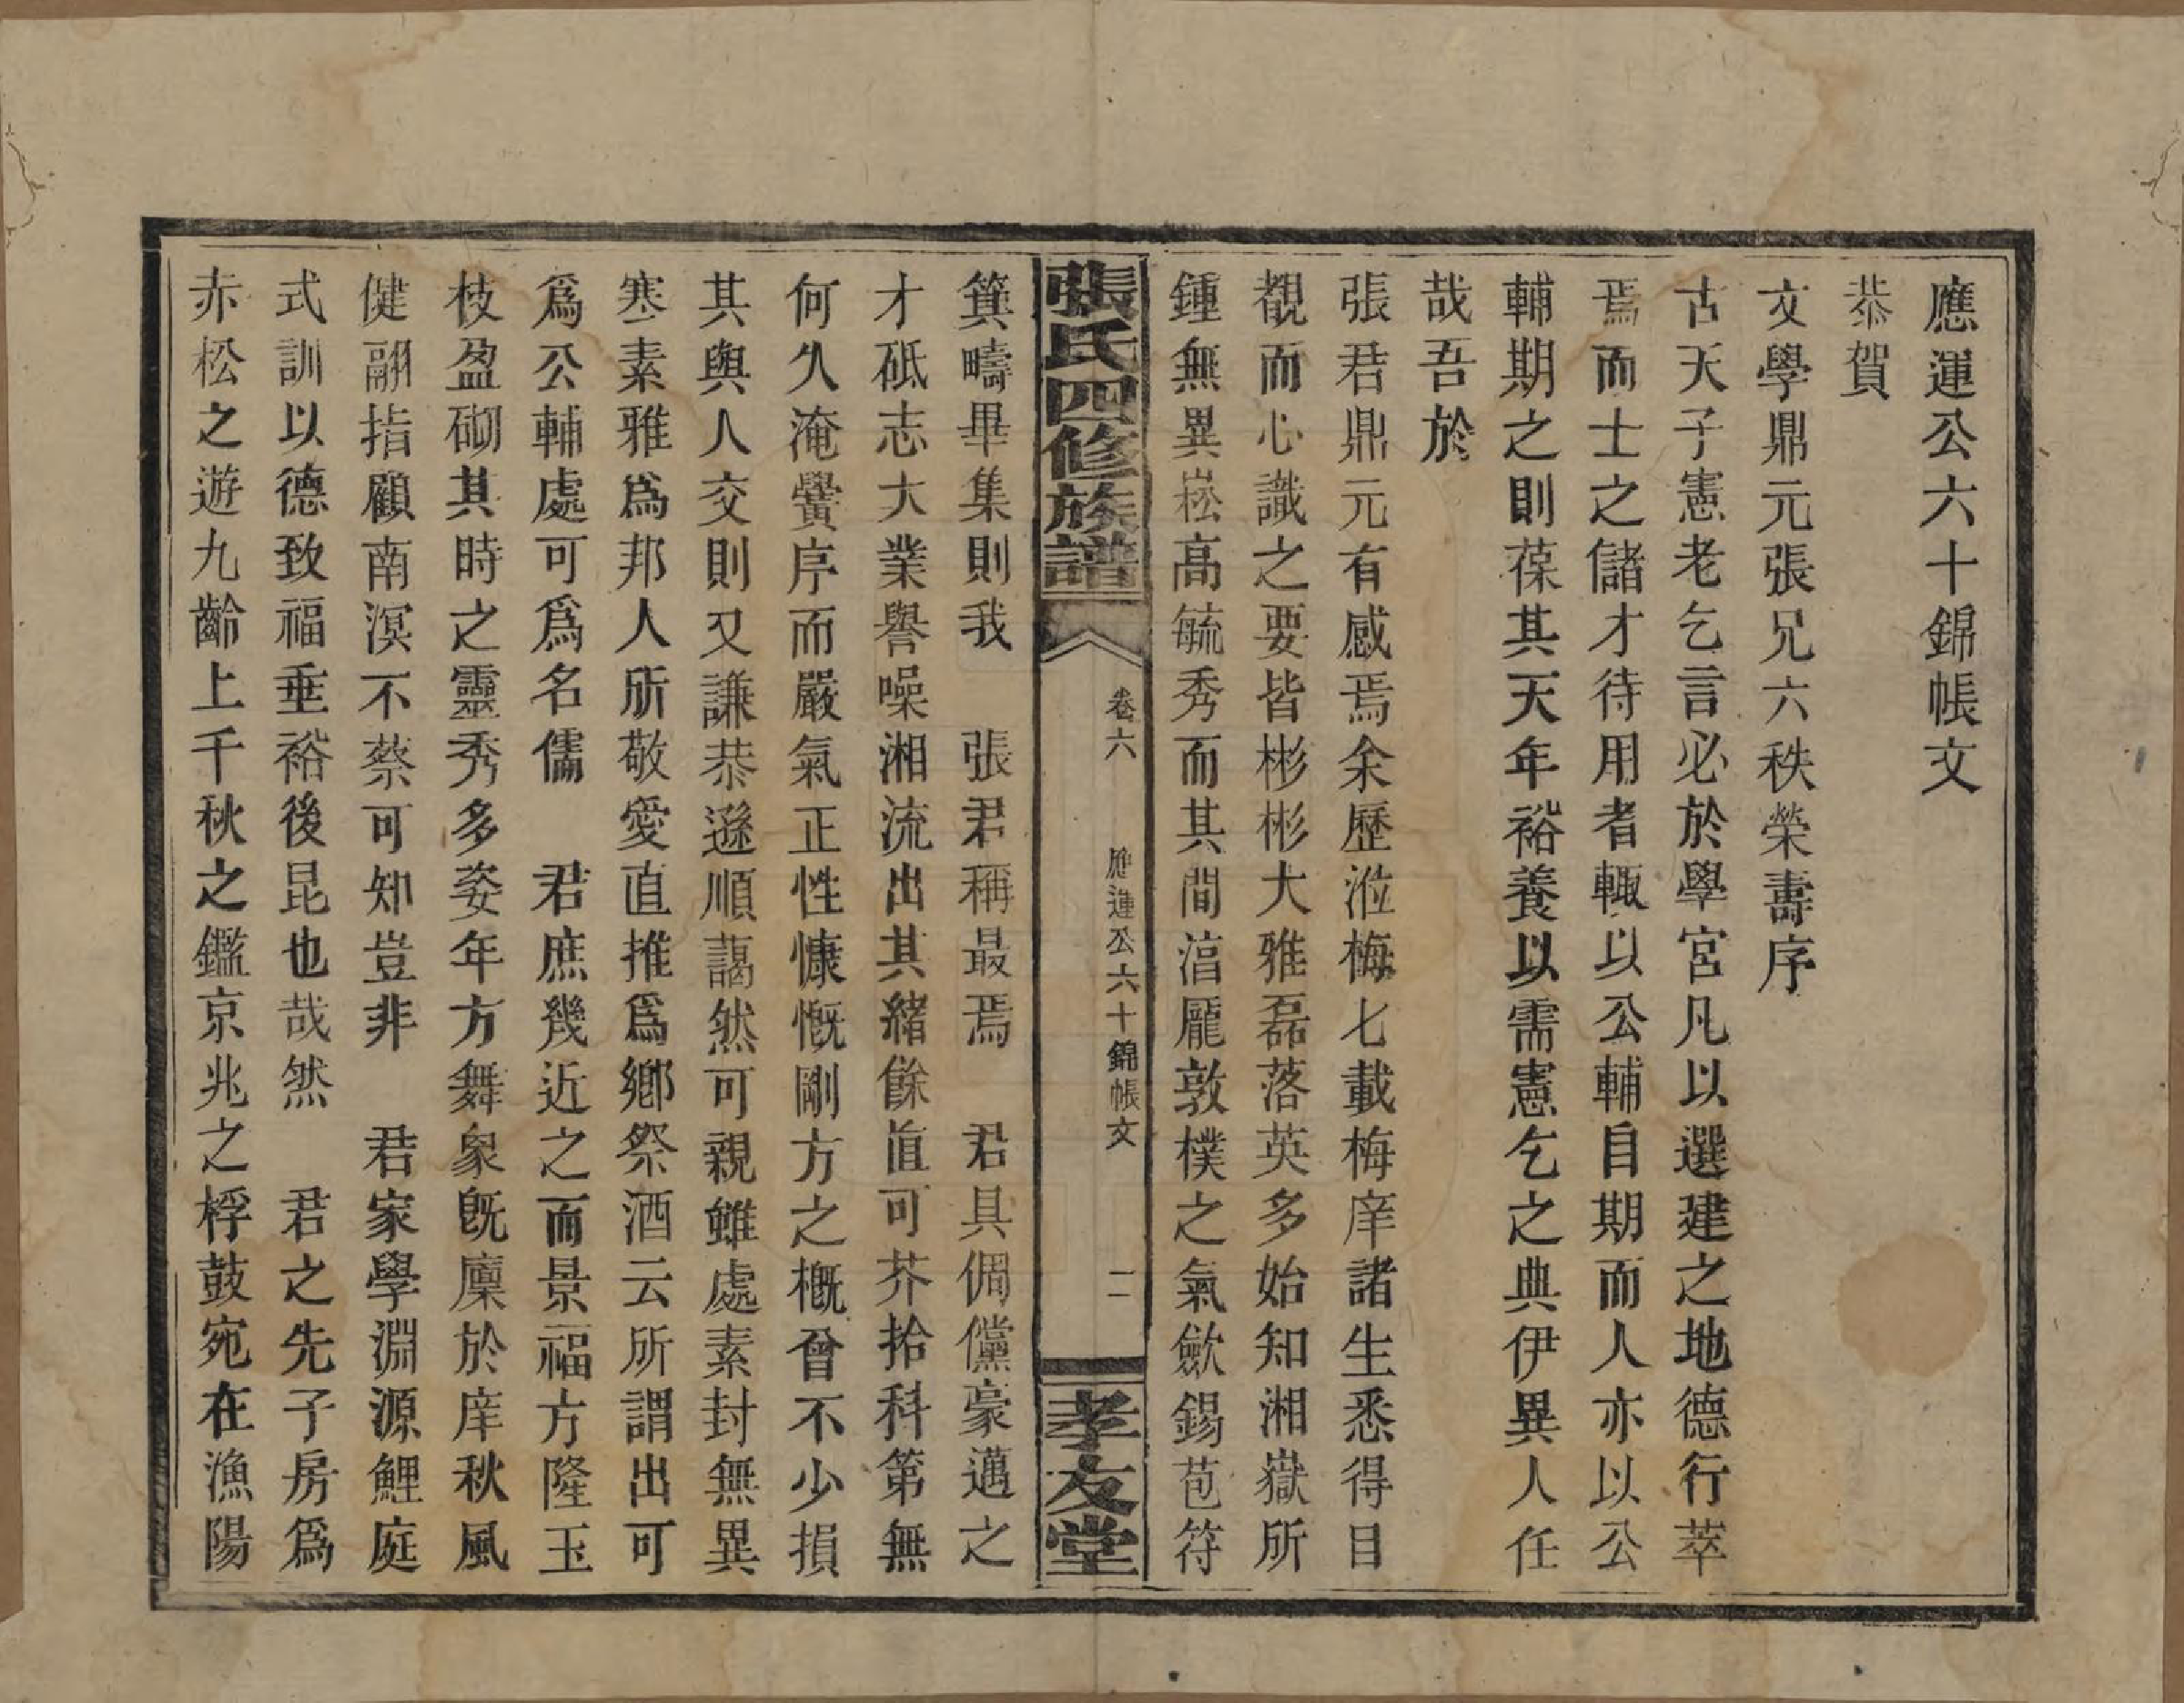 應運公六十錦帳文
恭賀
文學鼎元張兄六秩榮壽序
古天子憲老乞言必於學宮凡以選建之地德行萃
焉而士之儲才待用者輙以公輔自期而人亦以公
輔期之則葆其天年裕養以需憲乞之典伊異人任
哉吾於
張君鼎元有感焉余歷涖梅七載梅庠諸生悉得目
覩而心識之要皆彬彬大雅磊落英多始知湘嶽所
鍾無異崧高毓秀而其間湻厖敦樸之氣歛錫苞符
張氏四修族譜
卷六
應運公六十錦帳文
二
孝友堂
箕疇畢集則我　張君稱最焉　君具倜儻豪邁之
才砥志大業譽噪湘流出其緒餘直可芥拾科第無
何久淹黌序而嚴氣正性慷慨剛方之概曾不少損
其與人交則又謙恭遜順藹然可親雖處素封無異
寒素雅爲邦人所敬愛直推爲鄉祭酒云所謂出可
爲公輔處可爲名儒　君庶幾近之而景福方隆玉
枝盈砌其時之靈秀多姿年方舞象旣廩於庠秋風
健翮指顧南溟不蔡可知豈非　君家學淵源鯉庭
式訓以德致福垂裕後昆也哉然　君之先子房爲
赤松之遊九齡上千秋之鑑京兆之桴鼓宛在漁陽